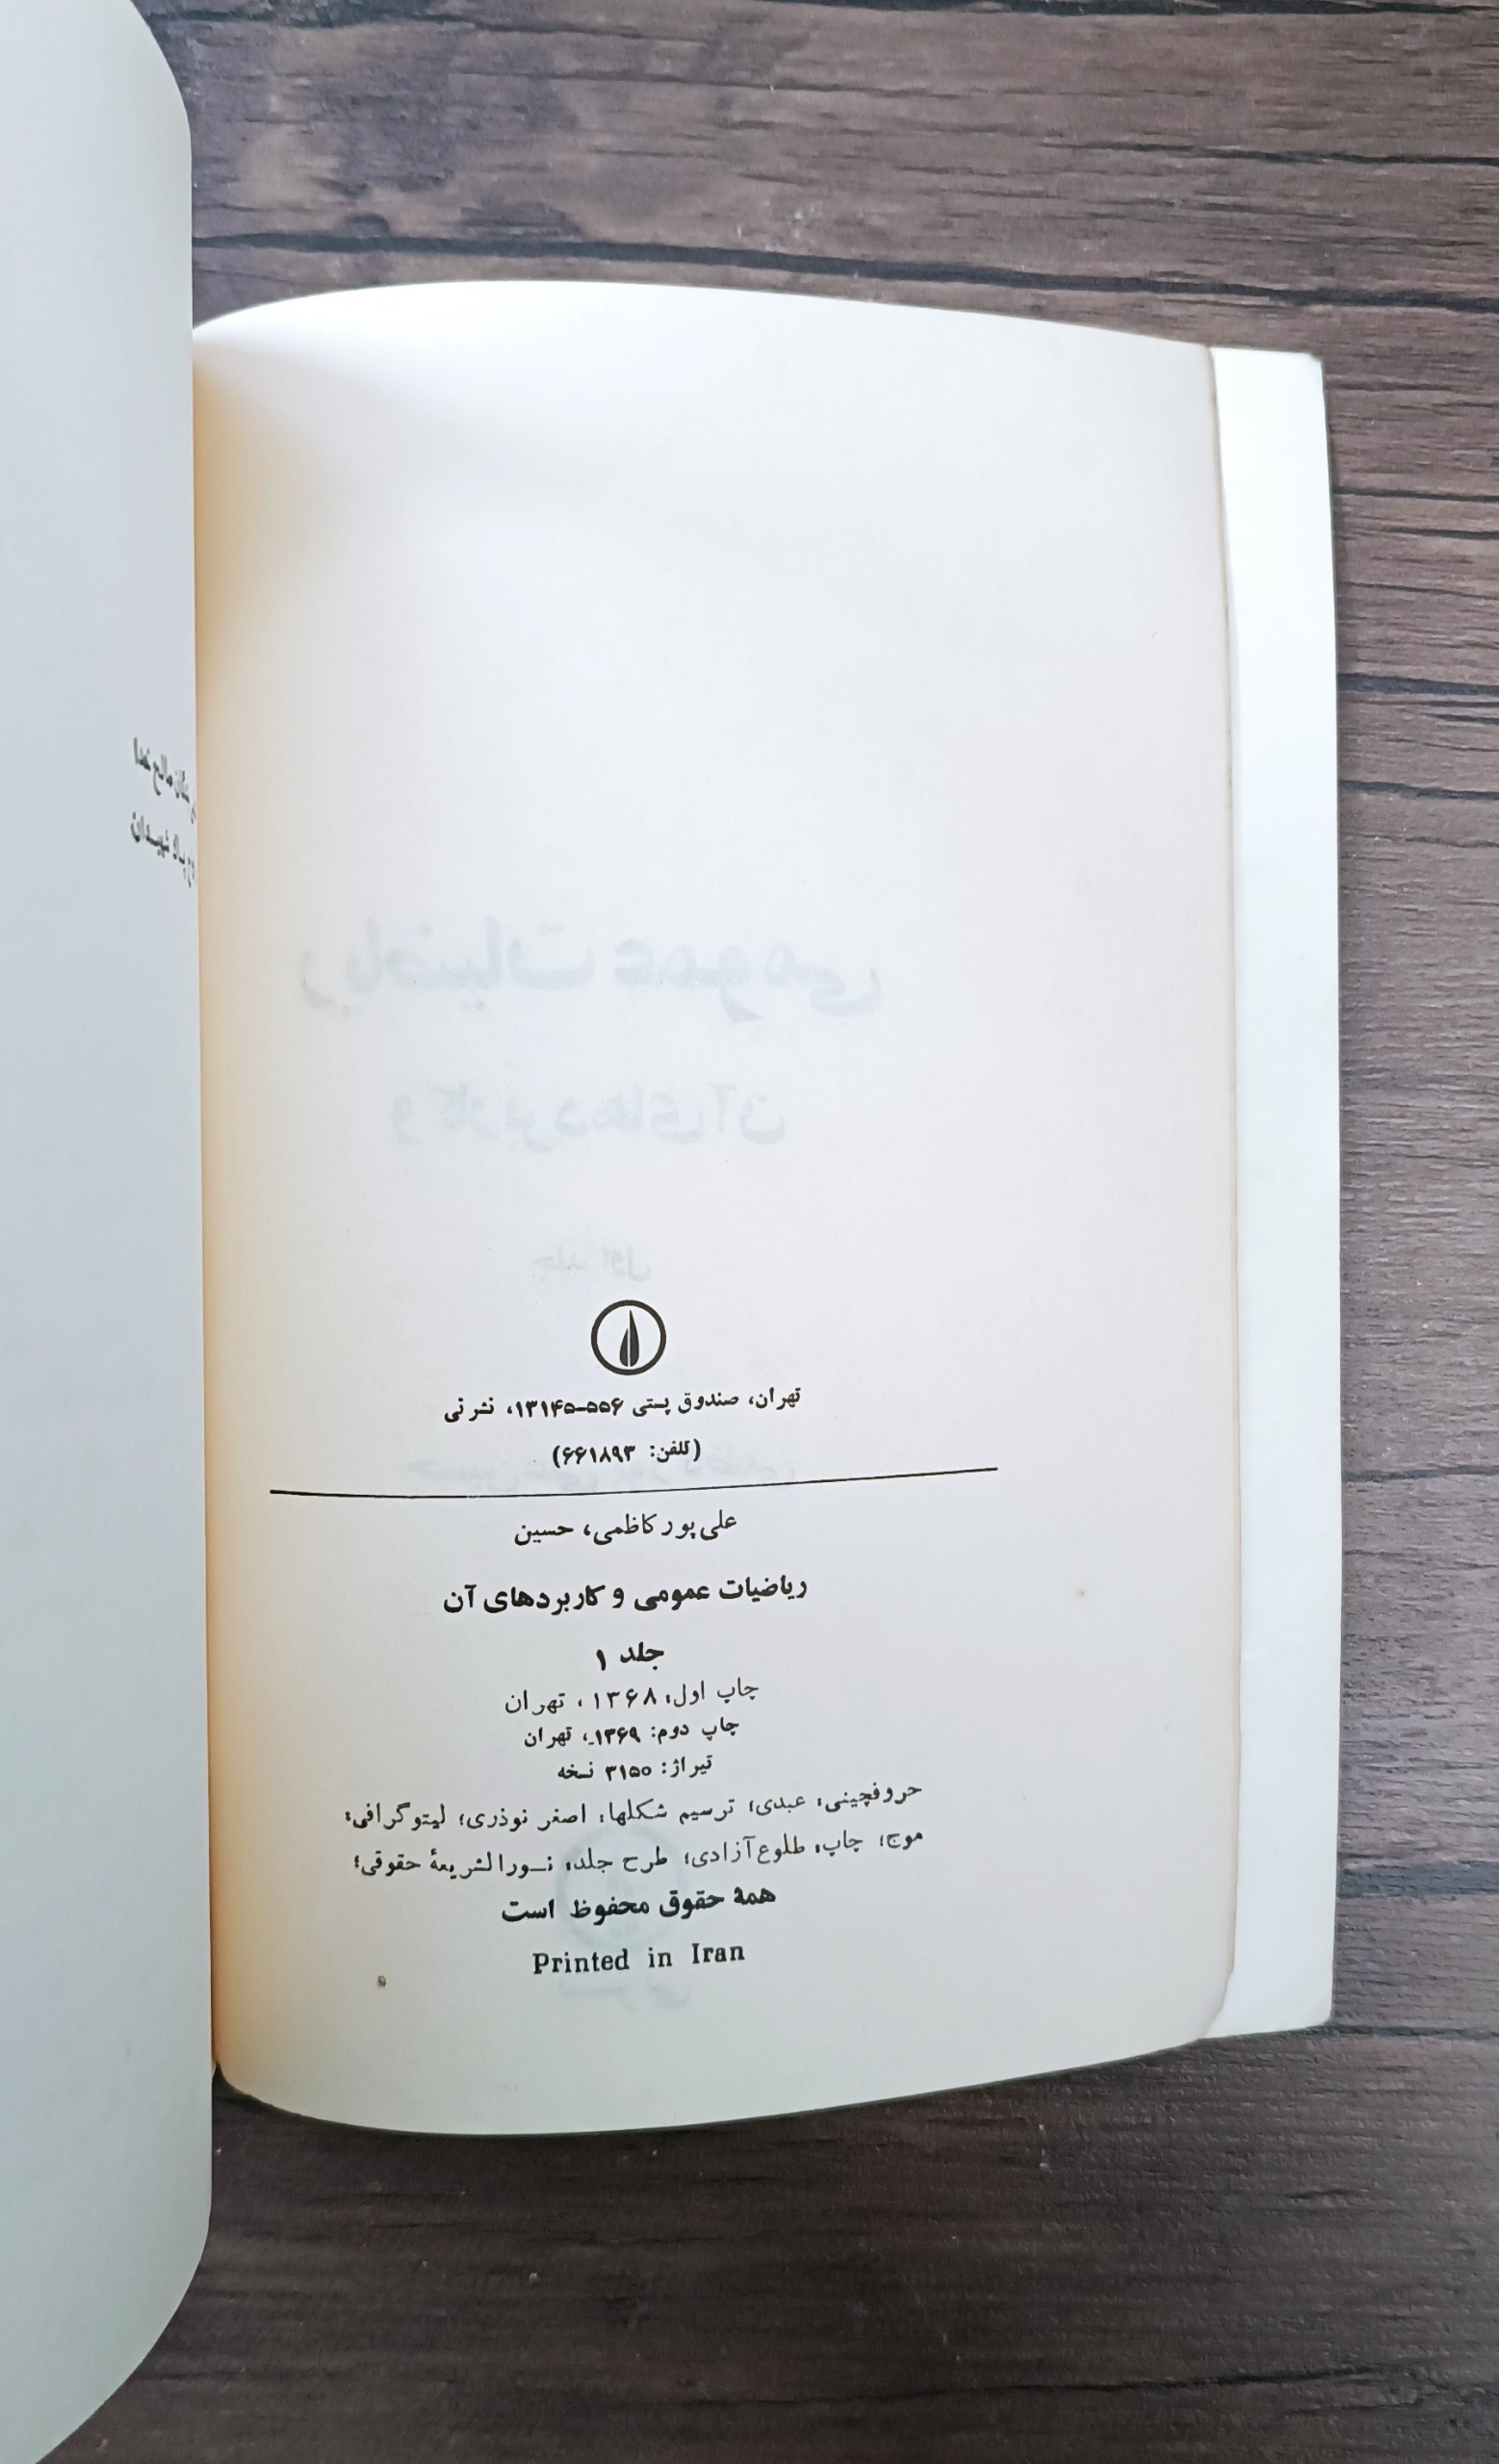 تهران، صندوق پستی ۵۵۶-۱۳۱۴۵، نشر نی
(تلفن: ۶۶۱۸۹۳)
علی‌پور کاظمی، حسین
ریاضیات عمومی و کاربردهای آن
جلد ۱
چاپ اول: ۱۳۶۸، تهران
چاپ دوم: ۱۳۶۹، تهران
تیراژ: ۳۱۵۰ نسخه
حروفچینی: عبدی؛ ترسیم شکلها: اصغر نوذری؛ لیتوگرافی:
موج؛ چاپ: طلوع آزادی؛ طرح جلد: نورالشریعهٔ حقوقی؛
همهٔ حقوق محفوظ است
Printed in Iran